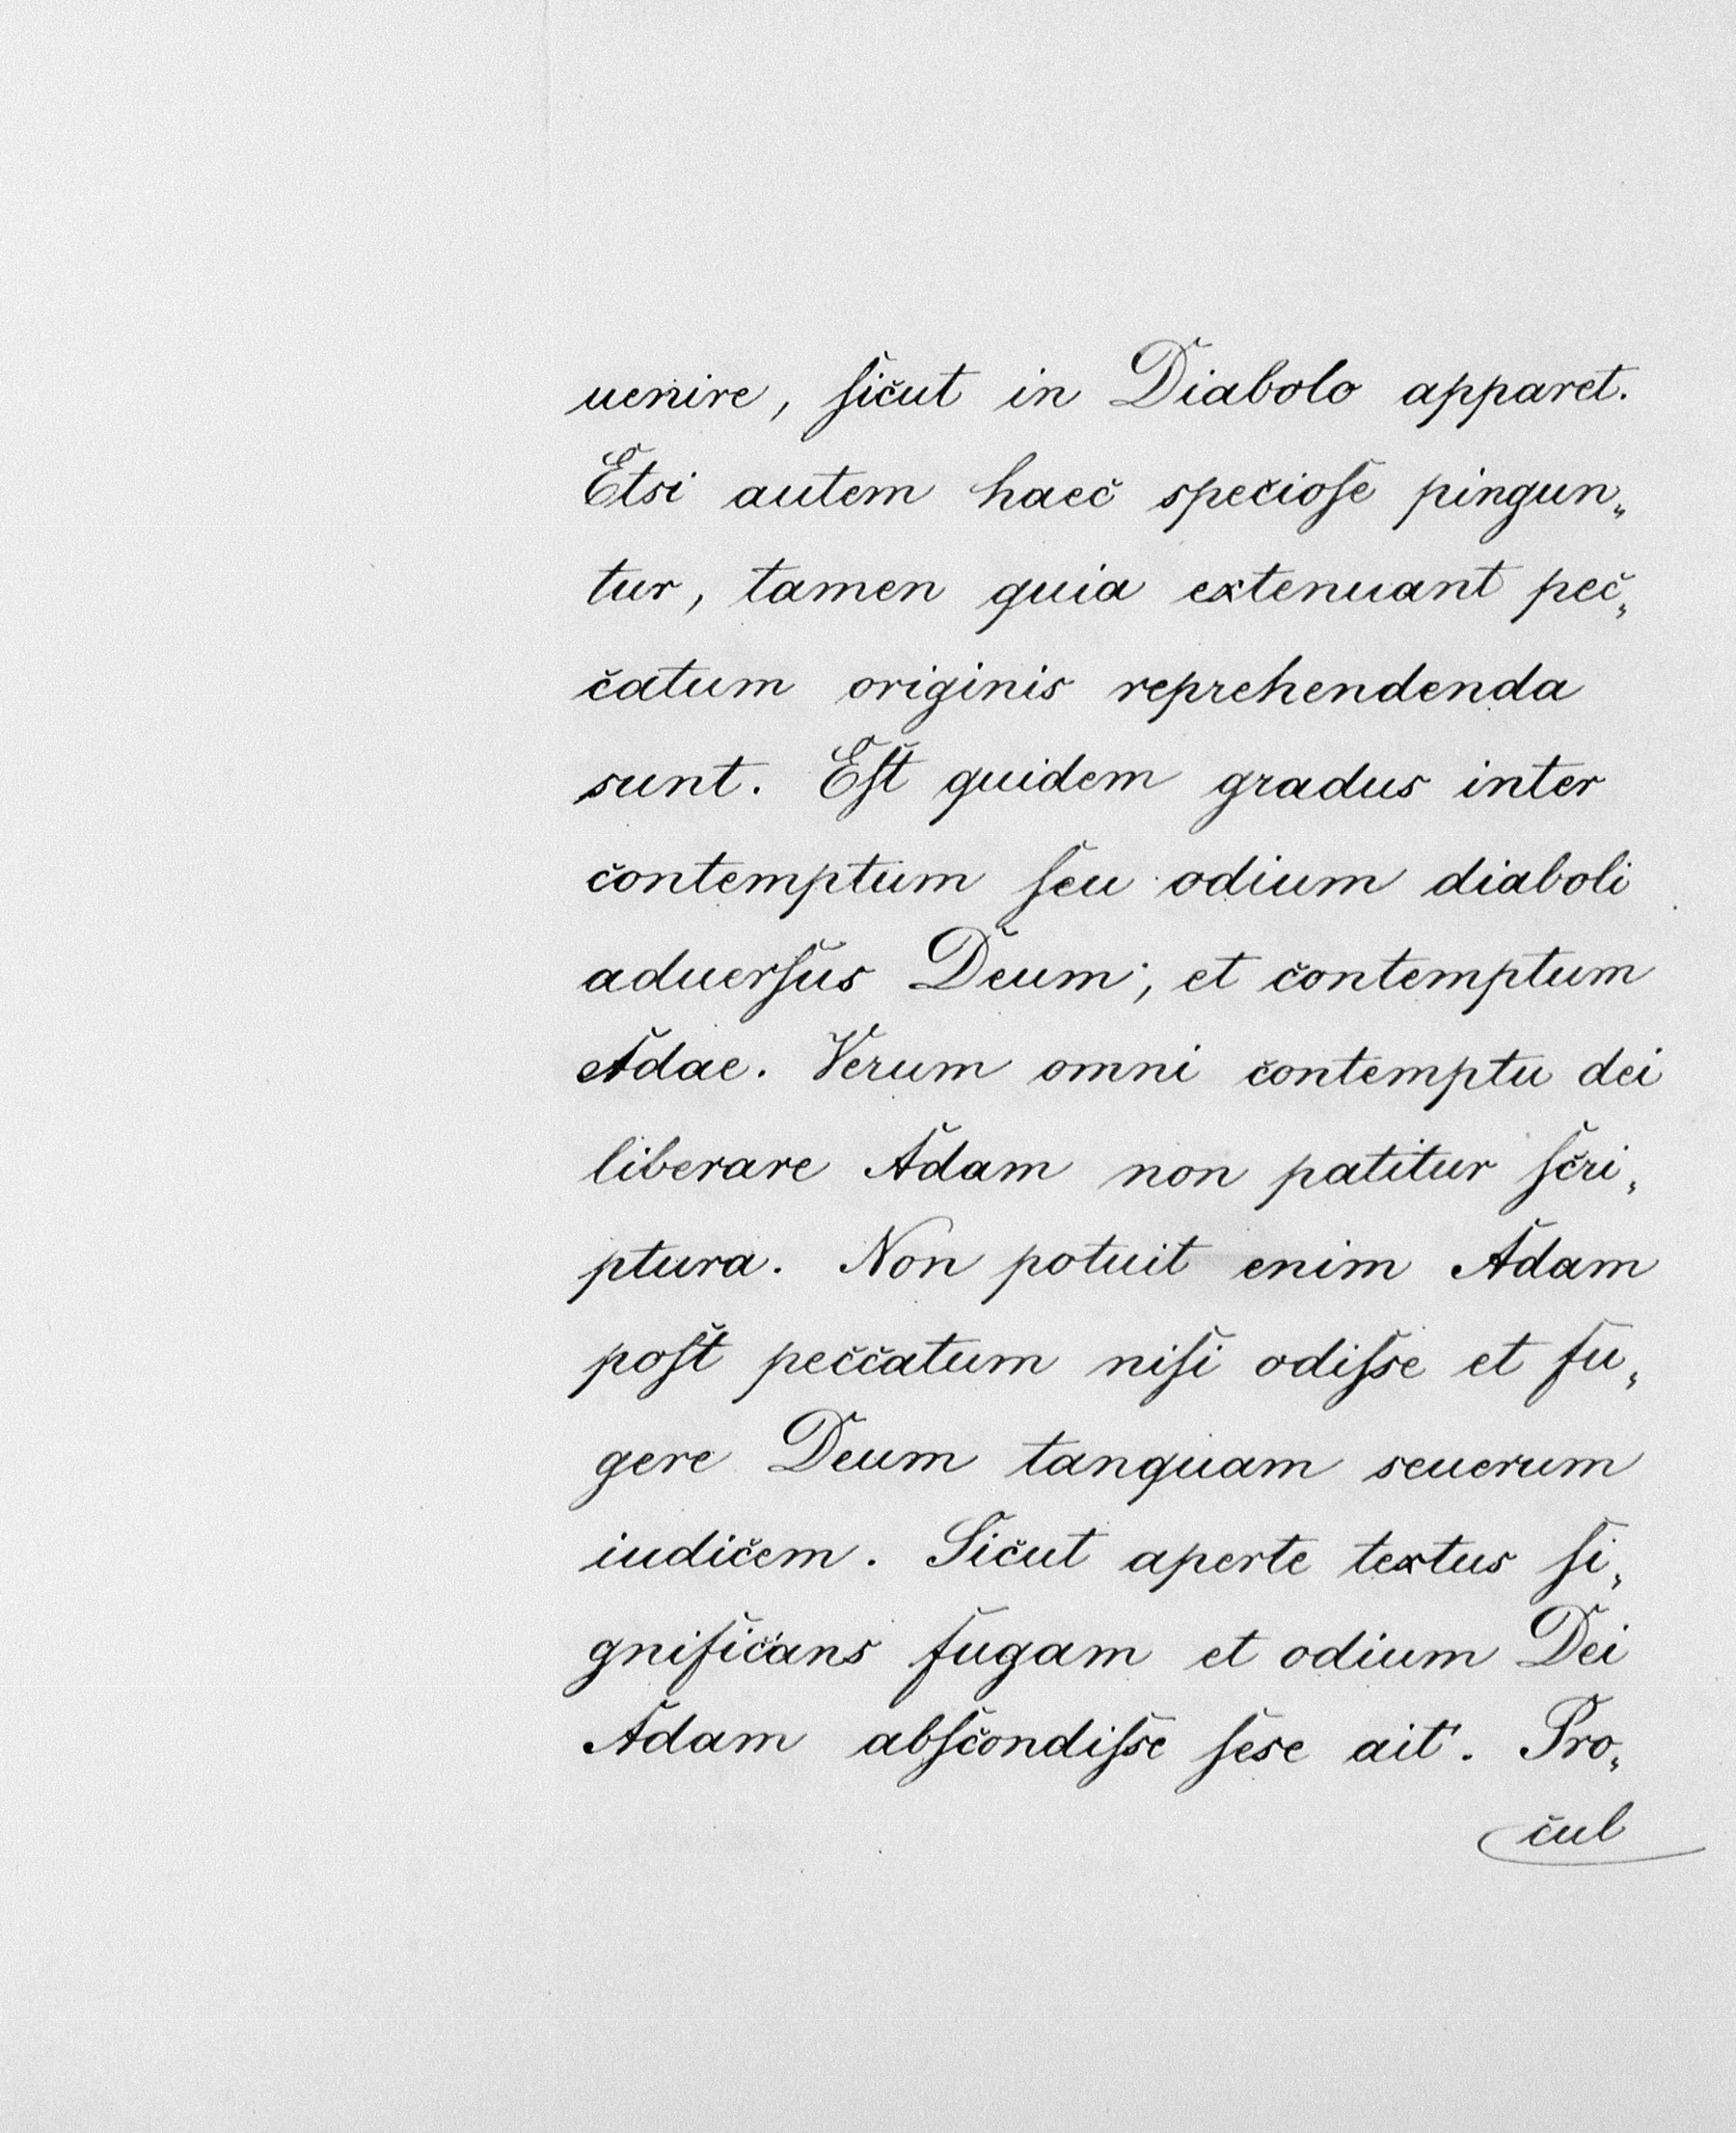 uenire, ſicut in Diabolo apparet.
Etsi autem haec specioſe pingun„
tur, tamen quia extenuant pec„
catum originis reprehendenda
sunt. Eſt quidem gradus inter
contemptum ſeu odium diaboli
aduerſus Deum; et contemptum
Adae. Verum omni contemptu dei
liberare Adam non patitur ſcri„
ptura. Non potuit enim Adam
poſt peccatum niſi odiſse et fu„
gere Deum tanquam seuerum
iudicem. Sicut aperte textus ſi„
gnificans fugam et odium Dei
Adam abſcondiſse ſese ait. Pro„
cul